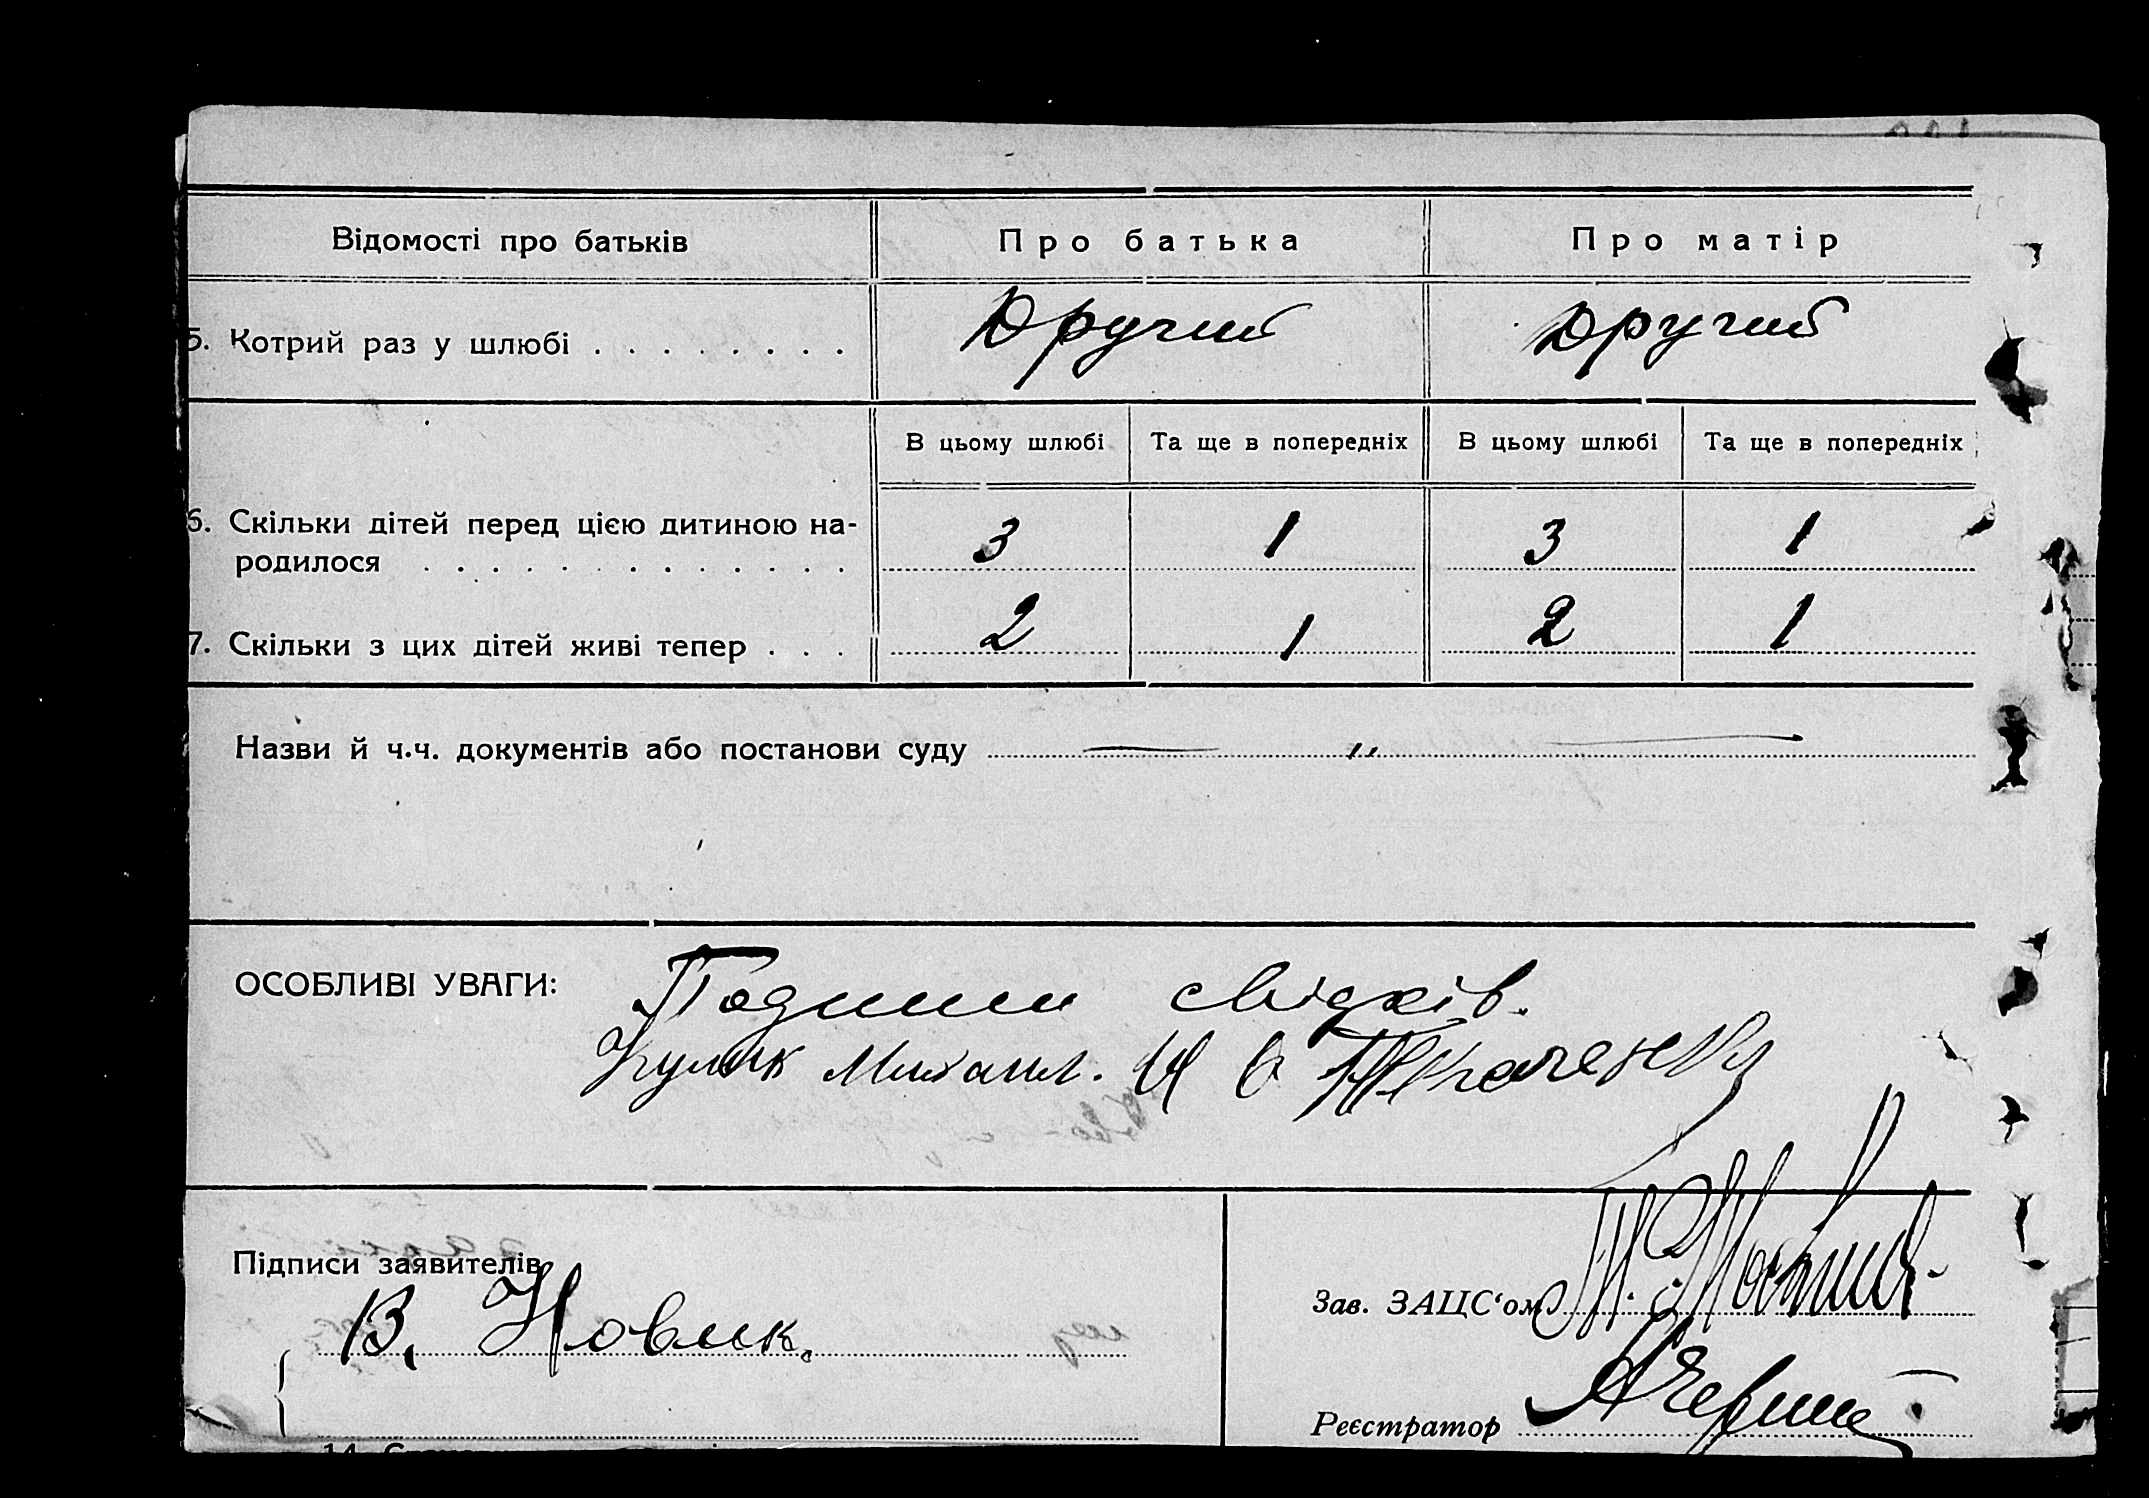 Відомості про батьків Про батька Про матір
5. Котрий раз у шлюбі . . . . . . . . Другий Другий
В цьому шлюбі Та ще в попередніх В цьому шлюбі Та ще в попередніх
6. Скільки дітей перед цією дитиною на-
родилося . . . . . . . . . . . . . 3 1 3 1
7. Скільки з цих дітей живі тепер . . . 2 1 2 1
Назви й ч.ч. документів або постанови суду — „ —
ОСОБЛИВІ УВАГИ: свідків.
Кулик Михаил. И Ткаченко
Підписи заявителів
В. Новик.
Зав. ЗАЦС'ом
Реєстратор